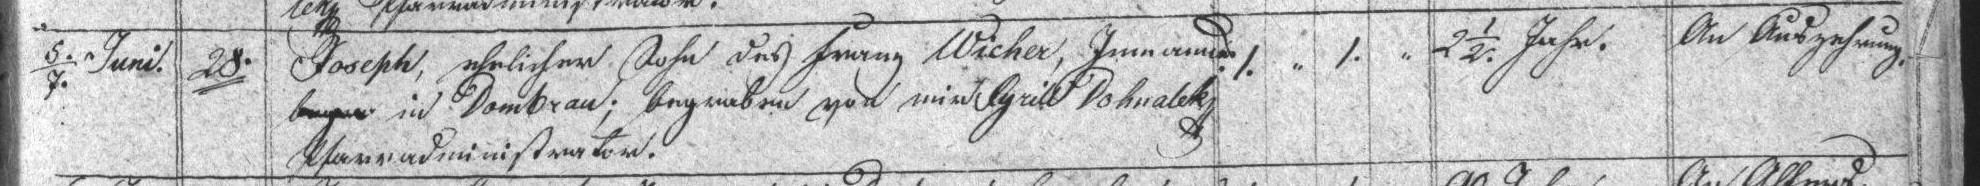 leky Pfarradministrator.
5./7. Juni. 28. Joseph, ehelicher Sohn des Franz Wicher, Inmanns 1. " 1. " 2 1/2. Jahr. An Auszehrung.
in Dombrau; begraben von mir Cyrill Dohnalek
Pfarradministrator.